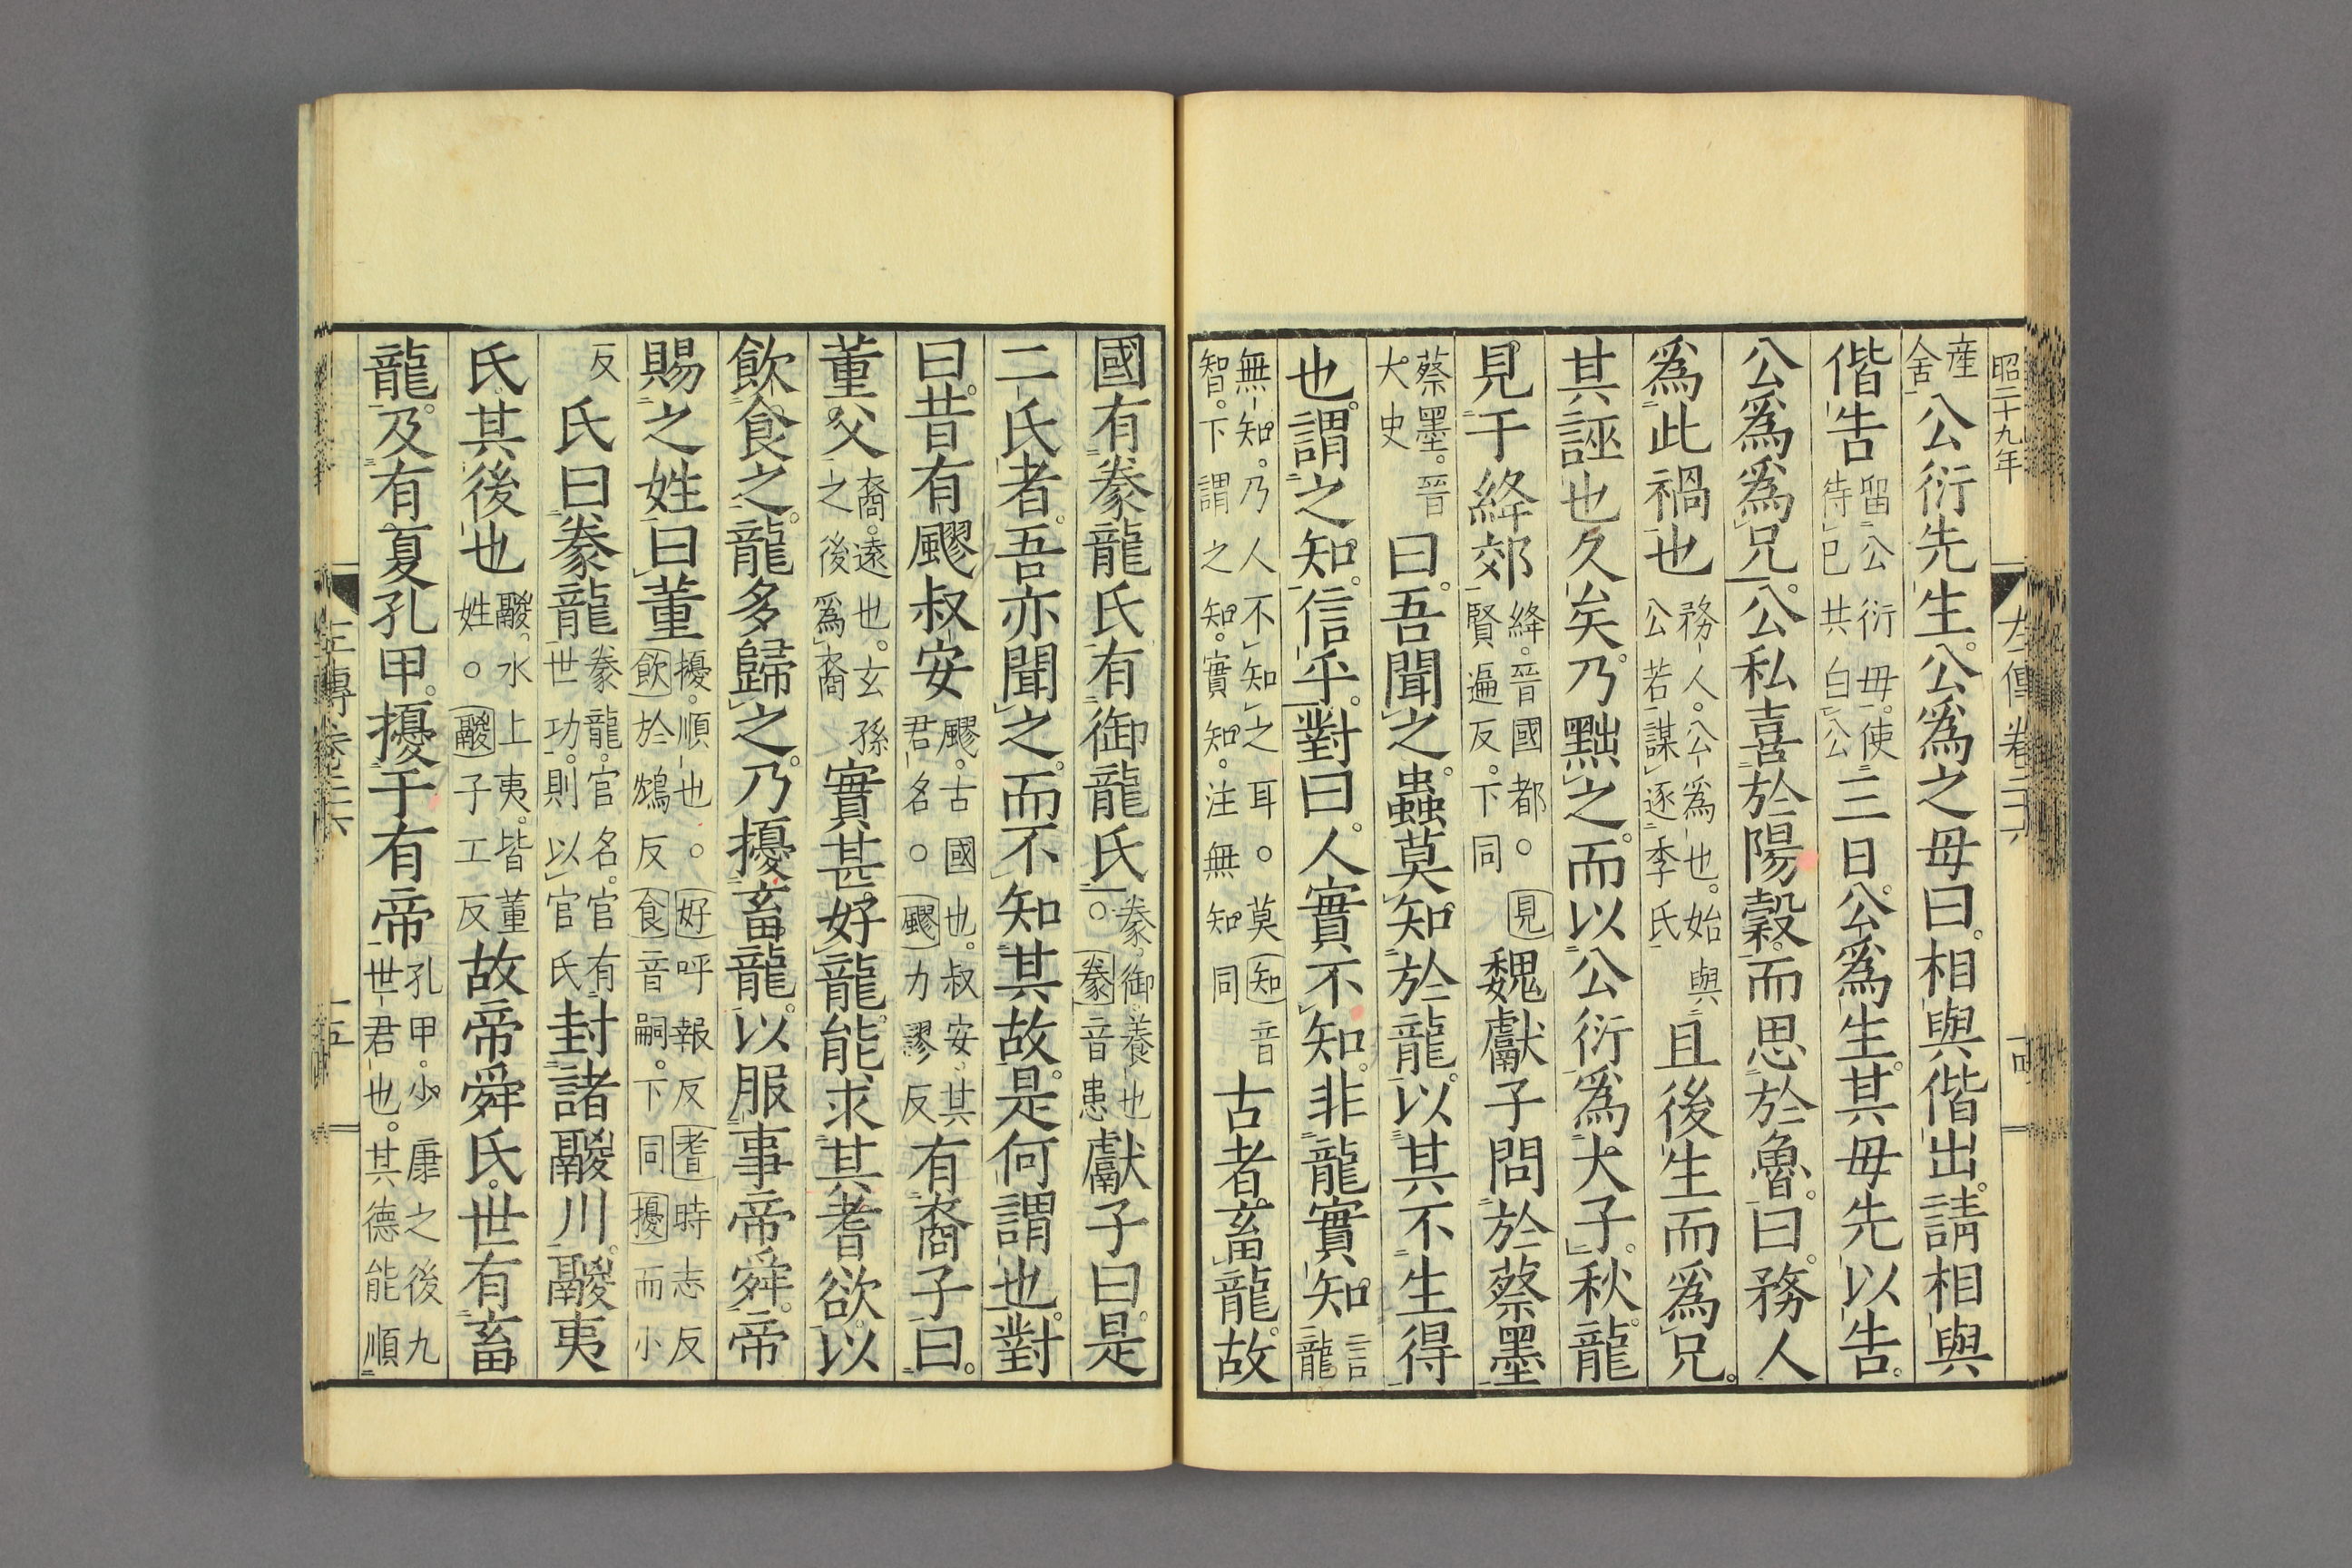 昭二十九年 左傳卷二十六 十四
産舍公衍先生。公爲之母曰。相與偕出。請相與
偕告留公衍母。使待已共白公三日。公爲生。其母先以告。
公爲爲兄。公私喜於陽穀。而思於魯。曰。務人
爲此禍也務人。公爲也。始與公若謀逐季氏且後生而爲兄。
其誣也久矣。乃黜之。而以公衍爲大子。秋。龍
見于絳郊絳。晉國都。○見賢遍反。下同魏獻子問於蔡墨
蔡墨。晉大史曰。吾聞之。蟲莫知於龍。以其不生得
也。謂之知。信乎。對曰。人實不知。非龍實知言龍
無知。乃人不知之耳。○莫知音智。下謂之知。實知。注無知同古者畜龍。故
國有豢龍氏有御龍氏豢。御。養也○豢音患獻子曰。是
二氏者。吾亦聞之。而不知其故。是何謂也。對
曰。昔有飂叔安飂。古國也。叔安。其君名。○飂力謬反有裔子曰。
董父裔。遠也。玄孫之後爲裔實甚好龍。能求其耆欲以
飲食之。龍多歸之。乃擾畜龍。以服事帝舜。帝
賜之姓曰董擾。順也。○好呼報反耆時志反飲於鴆反食音嗣。下同擾而小
反氏曰豢龍豢龍。官名。官有世功。則以官氏封諸鬷川。鬷夷
氏。其後也鬷。水上夷。皆董姓。○鬷子工反故帝舜氏。世有畜
龍。及有夏孔甲。擾于有帝孔甲。少康之後九世君也。其德能順